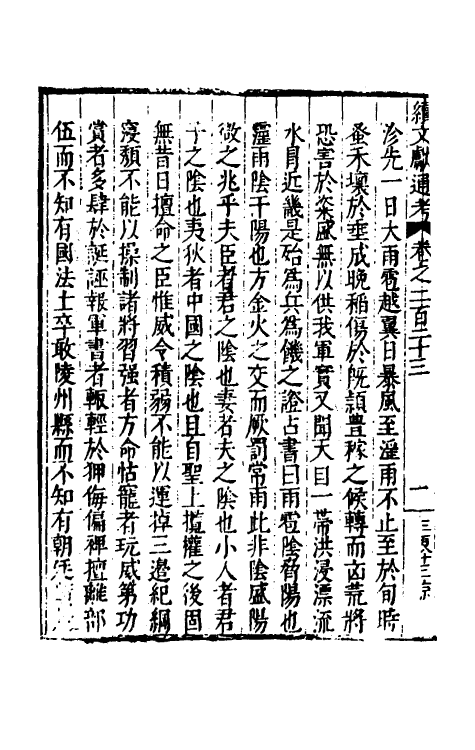 續文獻通考 卷之二百二十三 一
沴先一日大雨雹越翼日暴風至溼雨不止至於旬時
蚤禾壞於垂成晚稻傷於既頴豊稼之候轉而凶荒將
恐害於粢盛無以供我軍實又聞天目一帶洪浸漂流
水冐近畿是殆為兵為饑之證占書曰雨雹陰脅陽也
霪雨陰干陽也方金火之交而厥罰常雨此非陰盛陽
微之兆乎夫臣者君之陰也妻者夫之陰也小人者君
子之陰也夷狄者中國之陰也且自聖上攬權之後固
無昔日擅命之臣惟威令積弱不能以運掉三邉紀綱
寖頽不能以操制諸將習强者方命怙寵者玩威第功
賞者多肆於誕誣報軍書者輙輕於狎侮偏裨擅離部
伍而不知有國法士卒敢陵州縣而不知有朝廷